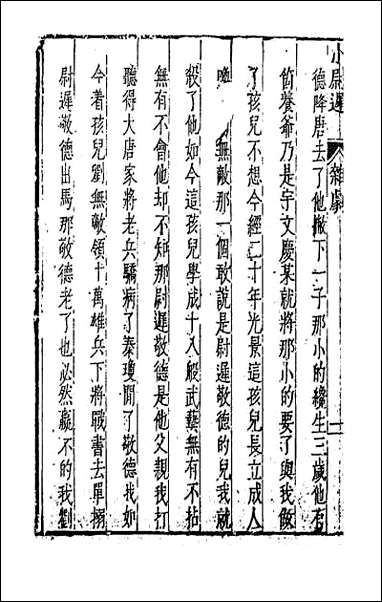 小尉遲　雜劇　一
德降唐去了他撇下一子那小的纔生三歲他有
箇養爺乃是宇文慶某就將那小的要了與我做
了孩兒不想今經二十年光景這孩兒長立成人
喚　無敵那一個敢說是尉遲敬德的兒我就
殺了他如今這孩兒學成十八般武藝無有不拈
無有不會他却不知那尉遲敬德是他父親我打
聽得大唐家將老兵驕病了秦瓊閒了敬德我如
今着孩兒劉無敵領十萬雄兵下將戰書去單搦
尉遲敬德出馬那敬德老了也必然贏不的我劉